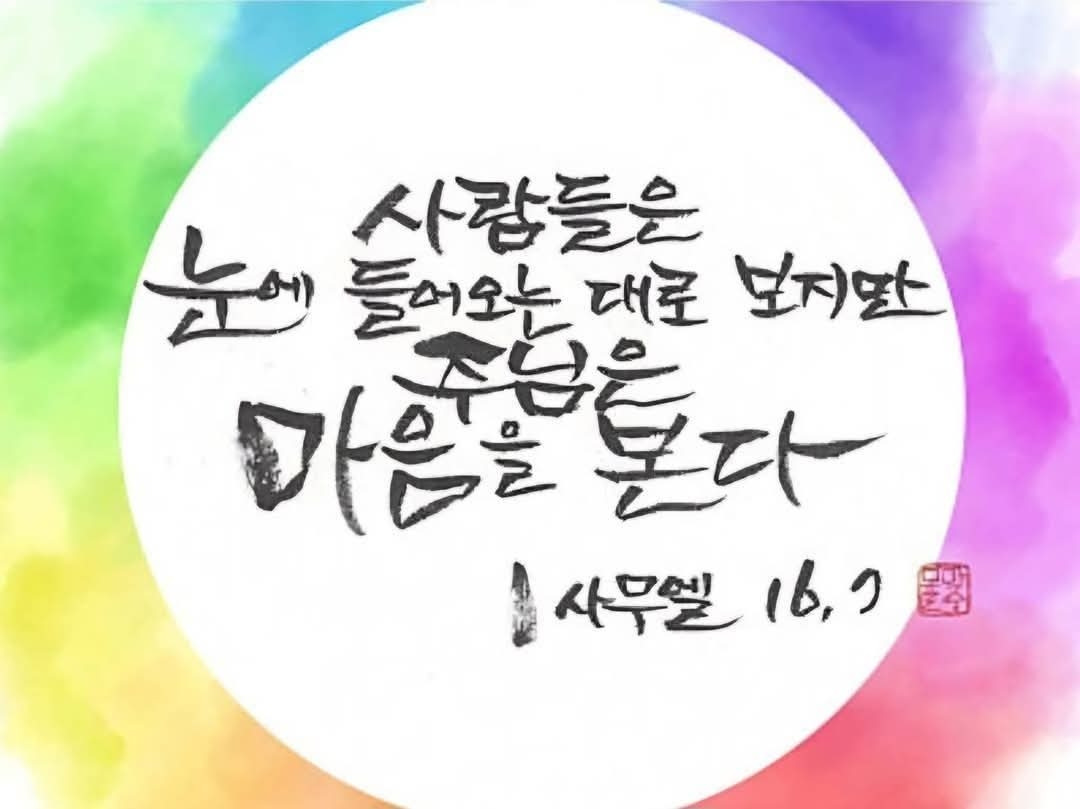 사람들은
눈에 들어오는 대로 보지만
주님은
마음을 본다
1 사무엘 16,7